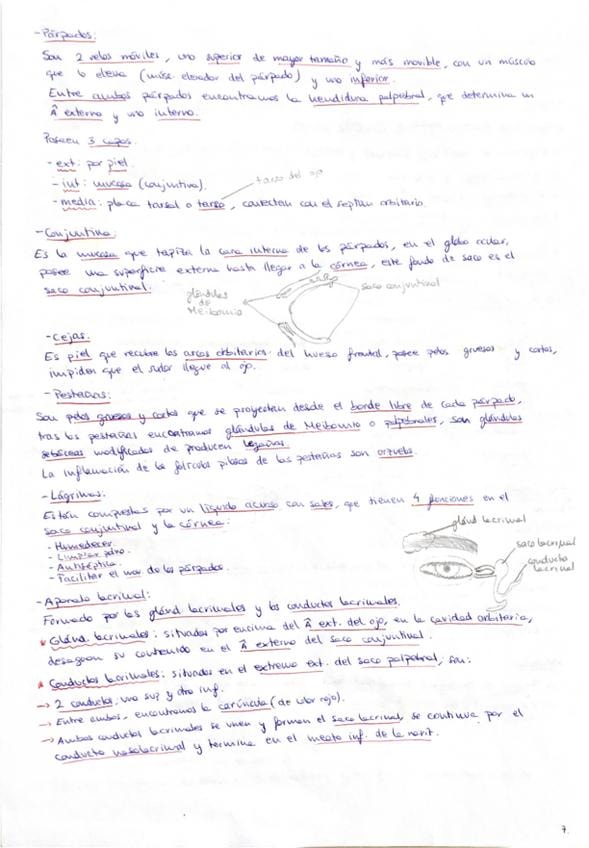 - Párpados:
Son 2 velos móviles, uno superior de mayor tamaño y más movible, con un músculo
que lo eleva (músc. elevador del párpado) y uno inferior.
Entre ambos párpados encontramos la hendidura palpebral, que determina un
Â externo y uno interno.
Poseen 3 capas.
- ext: por piel.
- int: mucosa (conjuntiva).
tarso del ojo
- media: placa tarsal o tarso, conectan con el septum orbitario.
- Conjuntiva:
Es la mucosa que tapiza la cara interna de los párpados, en el globo ocular,
posee una superficie externa hasta llegar a la córnea, este fondo de saco es el
saco conjuntival.
glándulas
de
Meibomio
saco conjuntival
- Cejas:
Es piel que recubre los arcos orbitarios del hueso frontal, posee pelos gruesos y cortos,
impiden que el sudor llegue al ojo.
- Pestañas:
Son pelos gruesos y cortos que se proyectan desde el borde libre de cada párpado,
tras las pestañas encontramos glándulas de Meibomio o palpebrales, son glándulas
sebáceas modificadas de producen legañas.
La inflamación de los folículos pilosos de las pestañas son orzuelos.
- Lágrimas:
Están compuestas por un líquido acuoso con sales, que tienen 4 funciones en el
saco conjuntival y la córnea:
- Humedecer.
- Limpiar polvo.
- Antiséptico.
- Facilitar el mov. de los párpados.
gland lacrimal
saco lacrimal
conducto
lacrimal
- Aparato lacrimal:
Formado por las glánd lacrimales y los conductos lacrimales.
* Glánd. lacrimales: situadas por encima del Â ext. del ojo, en la cavidad orbitaria,
desaguan su contenido en el Â externo del saco conjuntival.
* Conductos lacrimales: situados en el extremo ext. del saco palpebral, son:
→ 2 conductos: uno sup. y otro inf.
→ Entre ambos, encontramos la carúncula (de color rojo).
→ Ambos conductos lacrimales se unen y forman el saco lacrimal, se continua por el
conducto nasolacrimal y termina en el meato inf. de la nariz.
7.